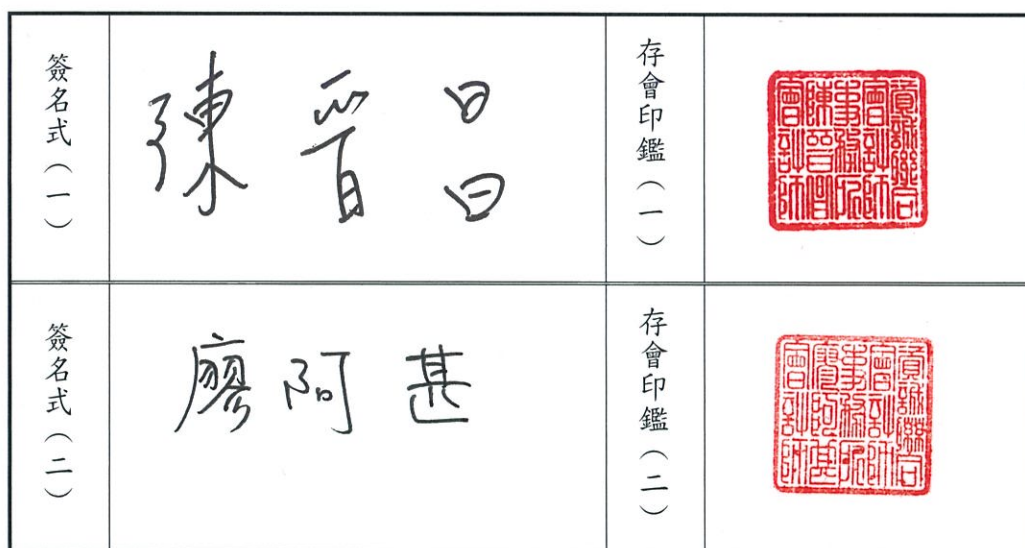 簽名式（一）
陳晉昌
存會印鑑（一）
會計師
事務所
陳晉昌
會計師
簽名式（二）
廖阿甚
存會印鑑（二）
會計師
事務所
廖阿甚
會計師